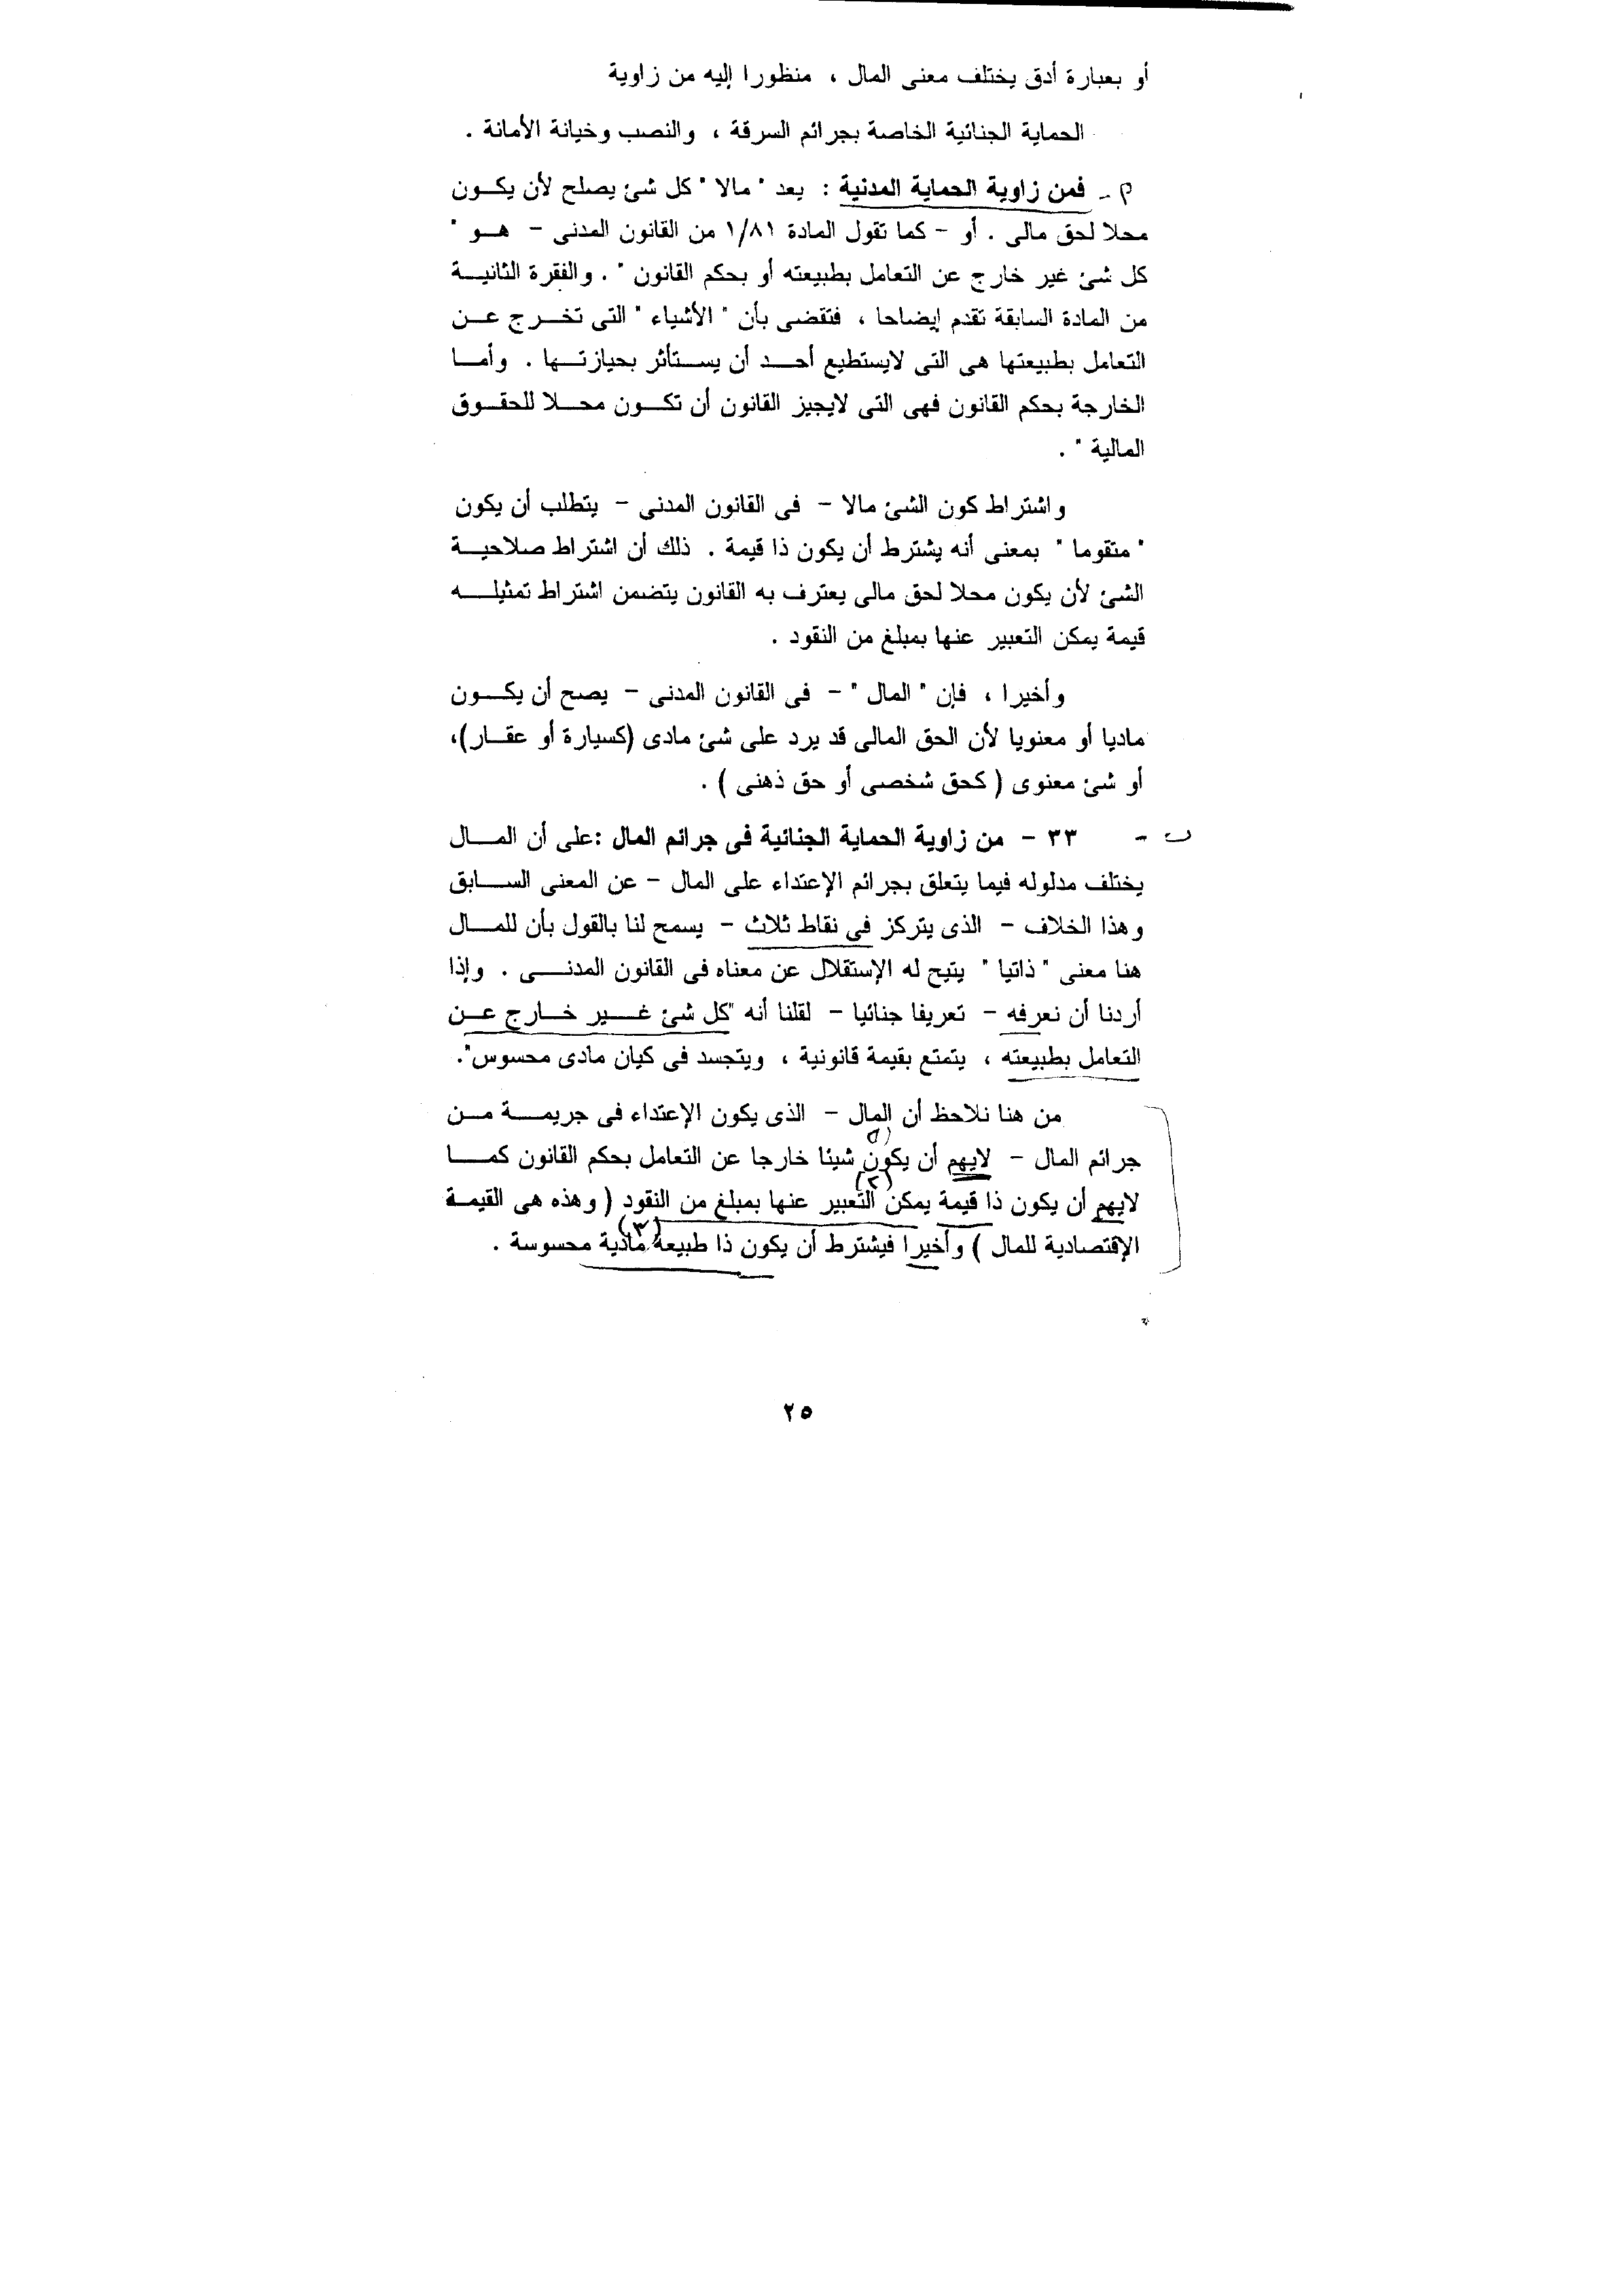 أو بعبارة أدق يختلف معنى المال ، منظورا إليه من زاوية
الحماية الجنائية الخاصة بجرائم السرقة ، والنصب وخيانة الأمانة .
م - فمن زاوية الحماية المدنية : يعد " مالا " كل شئ يصلح لأن يكون
محلا لحق مالى . أو - كما تقول المادة ١/٨١ من القانون المدنى - هو "
كل شئ غير خارج عن التعامل بطبيعته أو بحكم القانون " . والفقرة الثانية
من المادة السابقة تقدم إيضاحا ، فتقضى بأن " الأشياء " التى تخرج عن
التعامل بطبيعتها هى التى لايستطيع أحد أن يستأثر بحيازتها . وأما
الخارجة بحكم القانون فهى التى لايجيز القانون أن تكون محلا للحقوق
المالية " .
واشتراط كون الشئ مالا - فى القانون المدنى - يتطلب أن يكون
" متقوما " بمعنى أنه يشترط أن يكون ذا قيمة . ذلك أن اشتراط صلاحية
الشئ لأن يكون محلا لحق مالى يعترف به القانون يتضمن اشتراط تمثيله
قيمة يمكن التعبير عنها بمبلغ من النقود .
وأخيرا ، فإن " المال " - فى القانون المدنى - يصح أن يكون
ماديا أو معنويا لأن الحق المالى قد يرد على شئ مادى (كسيارة أو عقار)،
أو شئ معنوى ( كحق شخصى أو حق ذهنى ) .
ب - ٣٣ - من زاوية الحماية الجنائية فى جرائم المال :على أن المال
يختلف مدلوله فيما يتعلق بجرائم الإعتداء على المال - عن المعنى السابق
وهذا الخلاف - الذى يتركز فى نقاط ثلاث - يسمح لنا بالقول بأن للمال
هنا معنى " ذاتيا " يتيح له الإستقلال عن معناه فى القانون المدنى . وإذا
أردنا أن نعرفه - تعريفا جنائيا - لقلنا أنه "كل شئ غير خارج عن
التعامل بطبيعته ، يتمتع بقيمة قانونية ، ويتجسد فى كيان مادى محسوس".
من هنا نلاحظ أن المال - الذى يكون الإعتداء فى جريمة من
(١)
جرائم المال - لايهم أن يكون شيئا خارجا عن التعامل بحكم القانون كما
(٢)
لايهم أن يكون ذا قيمة يمكن التعبير عنها بمبلغ من النقود ( وهذه هى القيمة
(٣)
الإقتصادية للمال ) وأخيرا فيشترط أن يكون ذا طبيعة مادية محسوسة .
٢٥